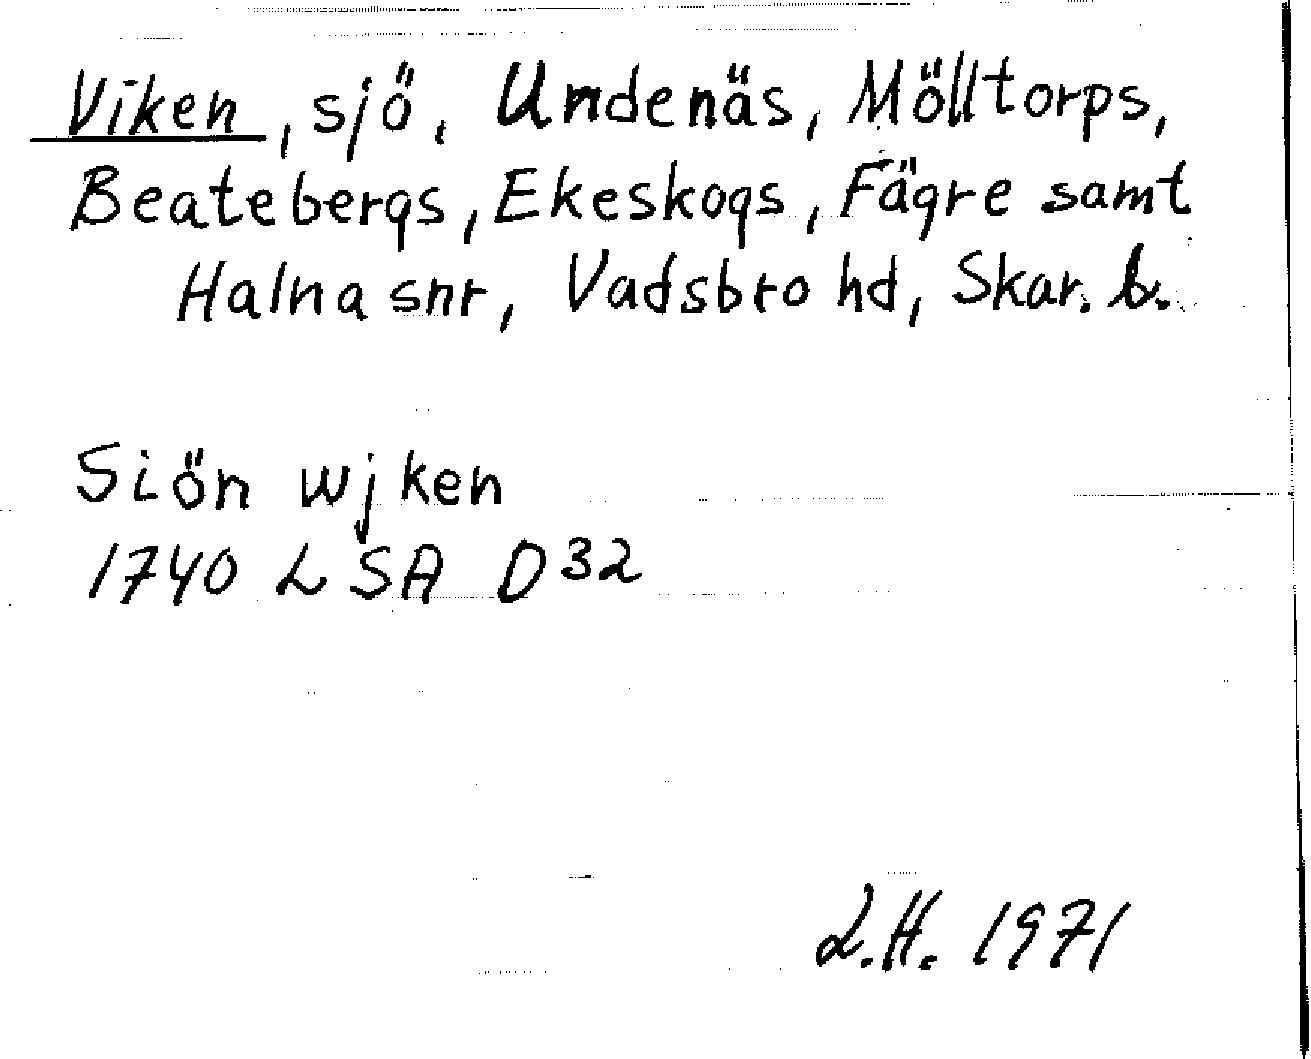 Viken, sjö, Undenäs, Mölltorps,
Beatebergs, Ekeskogs, Fägre samt
Halna snr, Vadsbro hd, Skar. b.
Siön wjken
1740 LSA D32
L.H. 1971